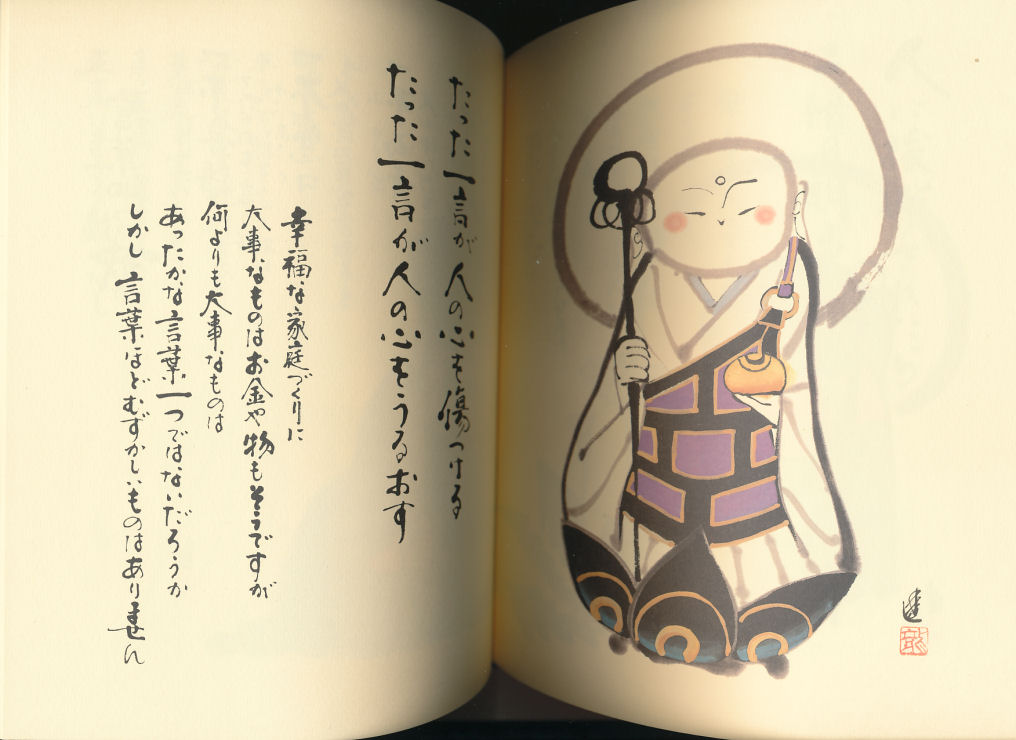 たった一言が人の心を傷つける
たった一言が人の心をうるおす
幸福な家庭づくりに
大事なものはお金や物もそうですが
何よりも大事なものは
あったかな言葉一つではないだろうか
しかし言葉ほどむずかしいものはありません